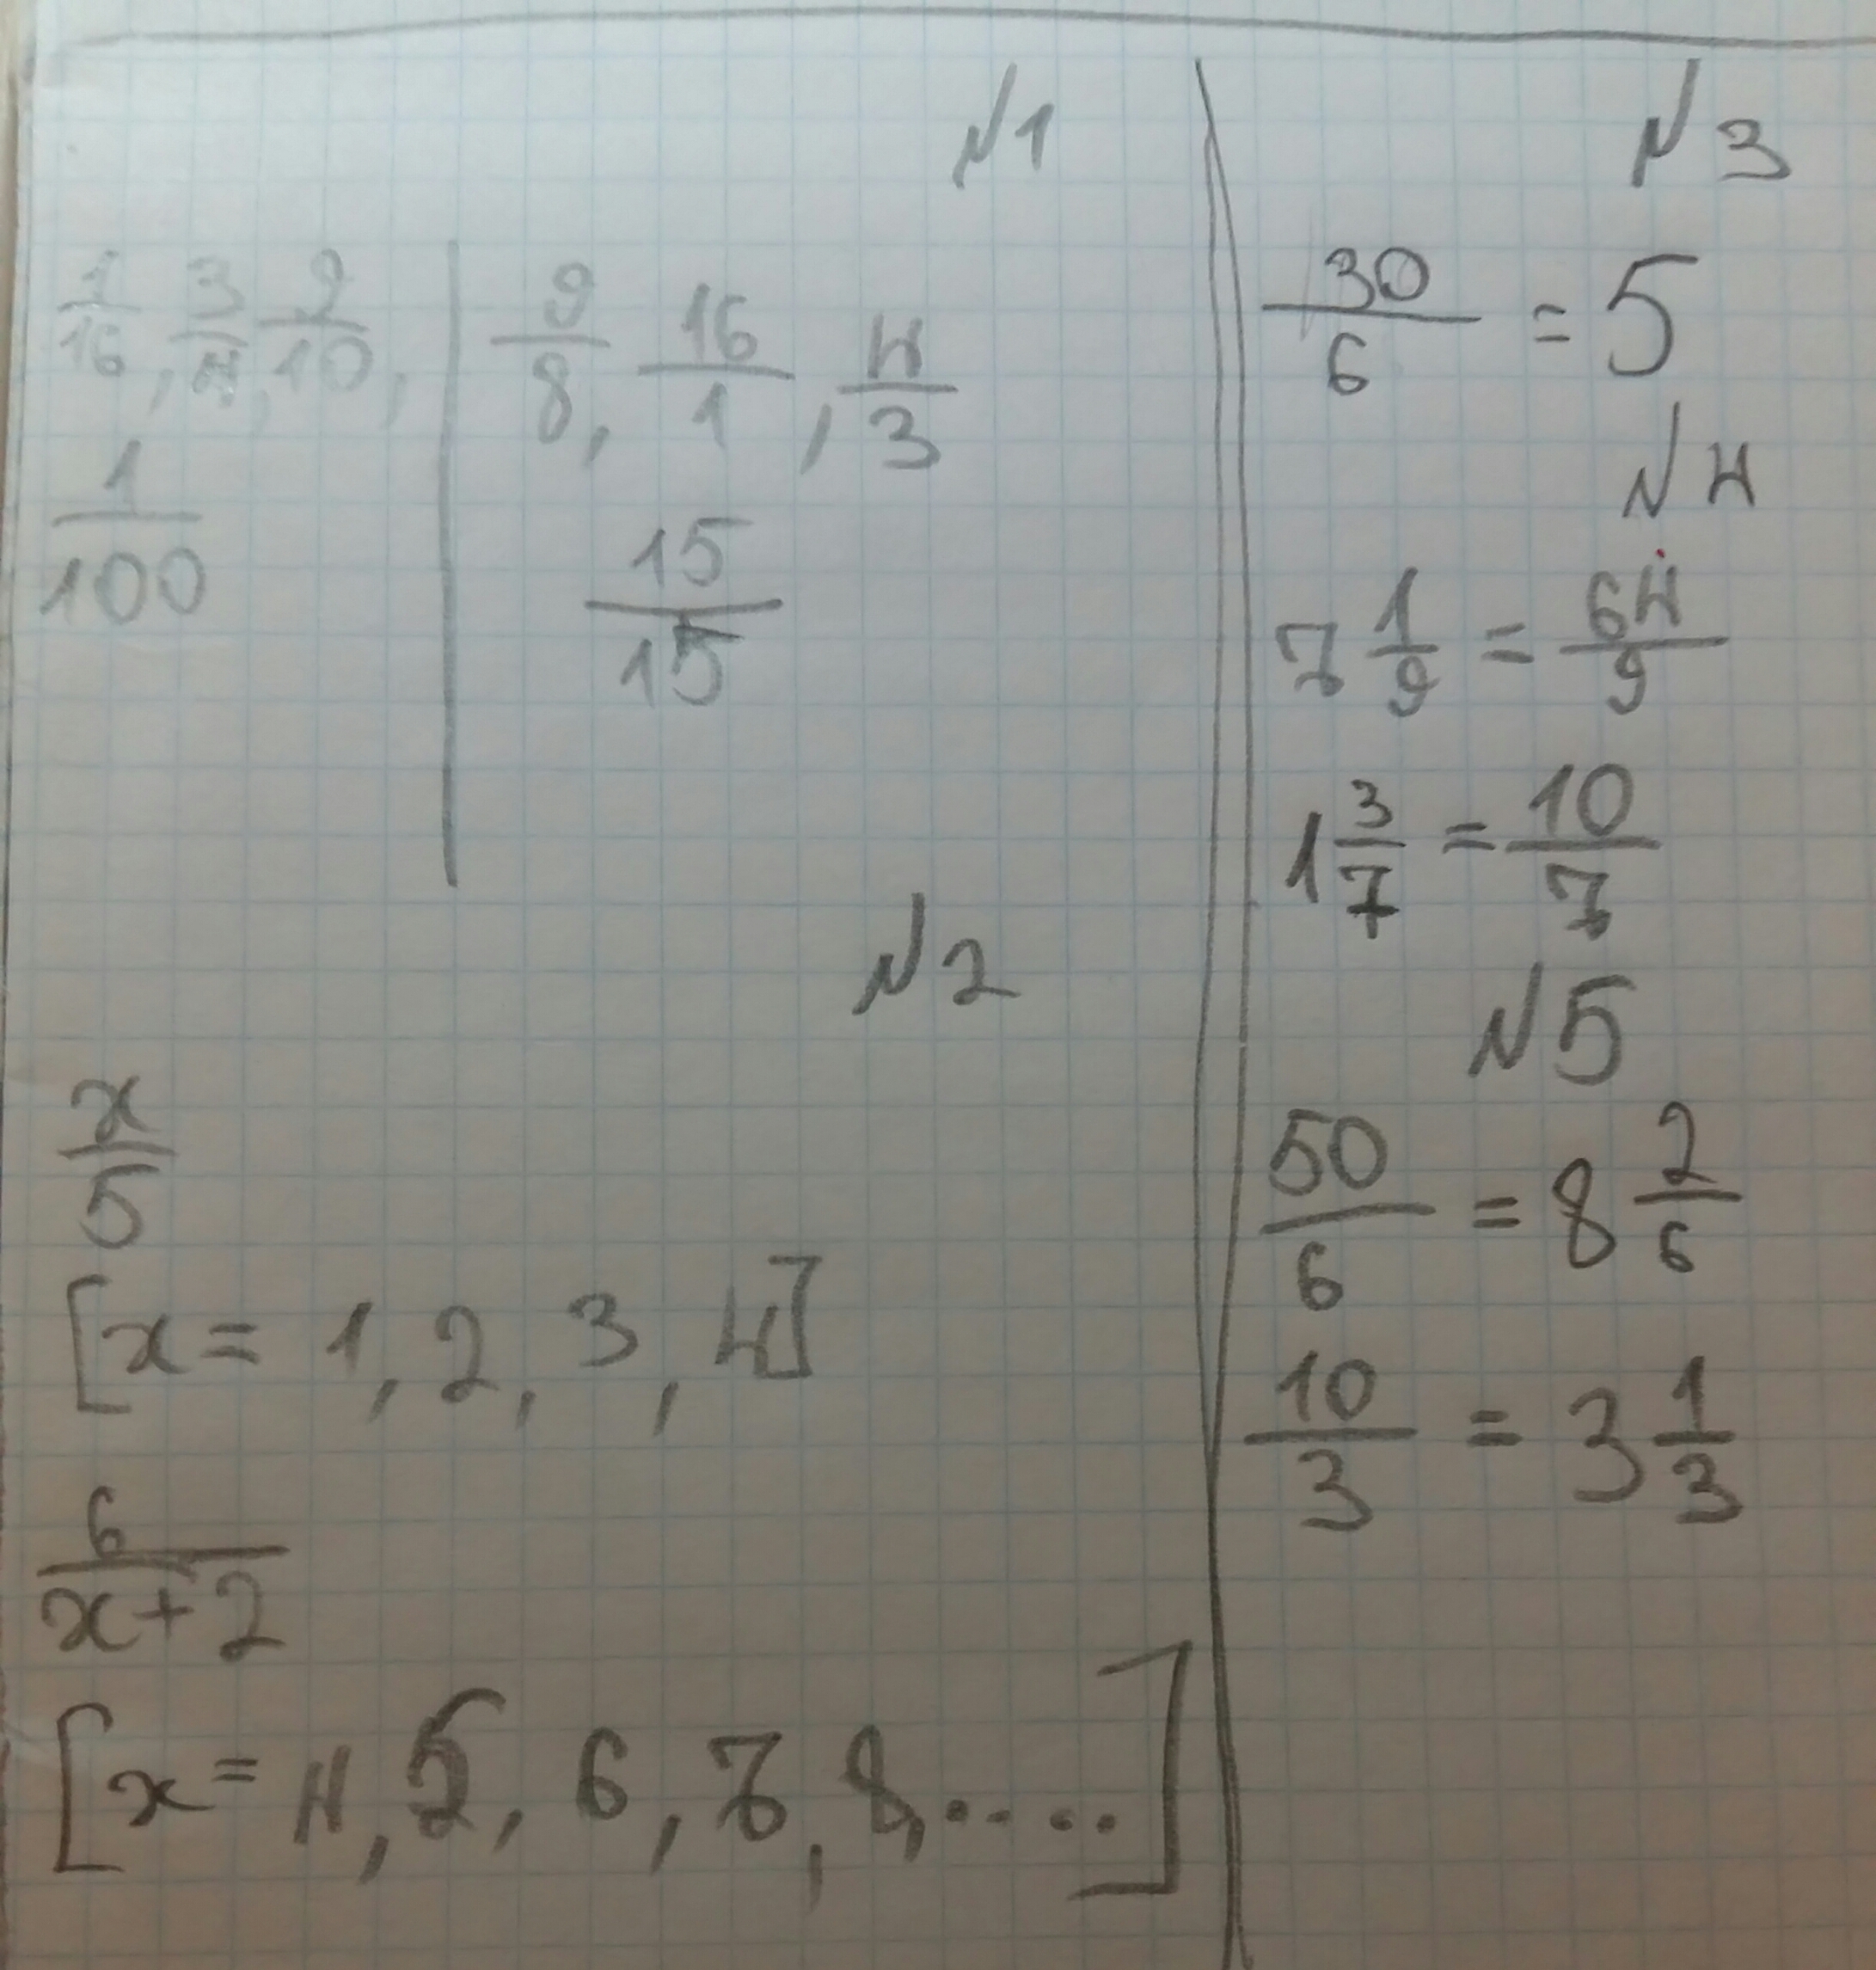 №1
1/16, 3/4, 9/10, | 9/8, 16/1, 4/3
1/100 | 15/15
№2
x/5
[x = 1, 2, 3, 4]
6/(x+2)
[x = 4, 5, 6, 7, 8, ....]
№3
30/6 = 5
№4
7 1/9 = 64/9
1 3/7 = 10/7
№5
50/6 = 8 2/6
10/3 = 3 1/3